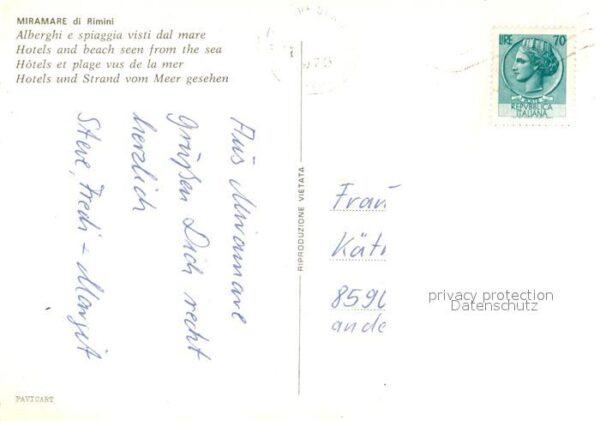 MIRAMARE di Rimini
Alberghi e spiaggia visti dal mare
Hotels and beach seen from the sea
Hôtels et plage vus de la mer
Hotels und Strand vom Meer gesehen
LIRE 70
REPVBBLICA
ITALIANA
Aus Miramare
grüßen Dich recht
herzlich
Steve, Fredi + Margit
RIPRODUZIONE VIETATA
Frau
Kät
859
ande
privacy protection
Datenschutz
PAVICART